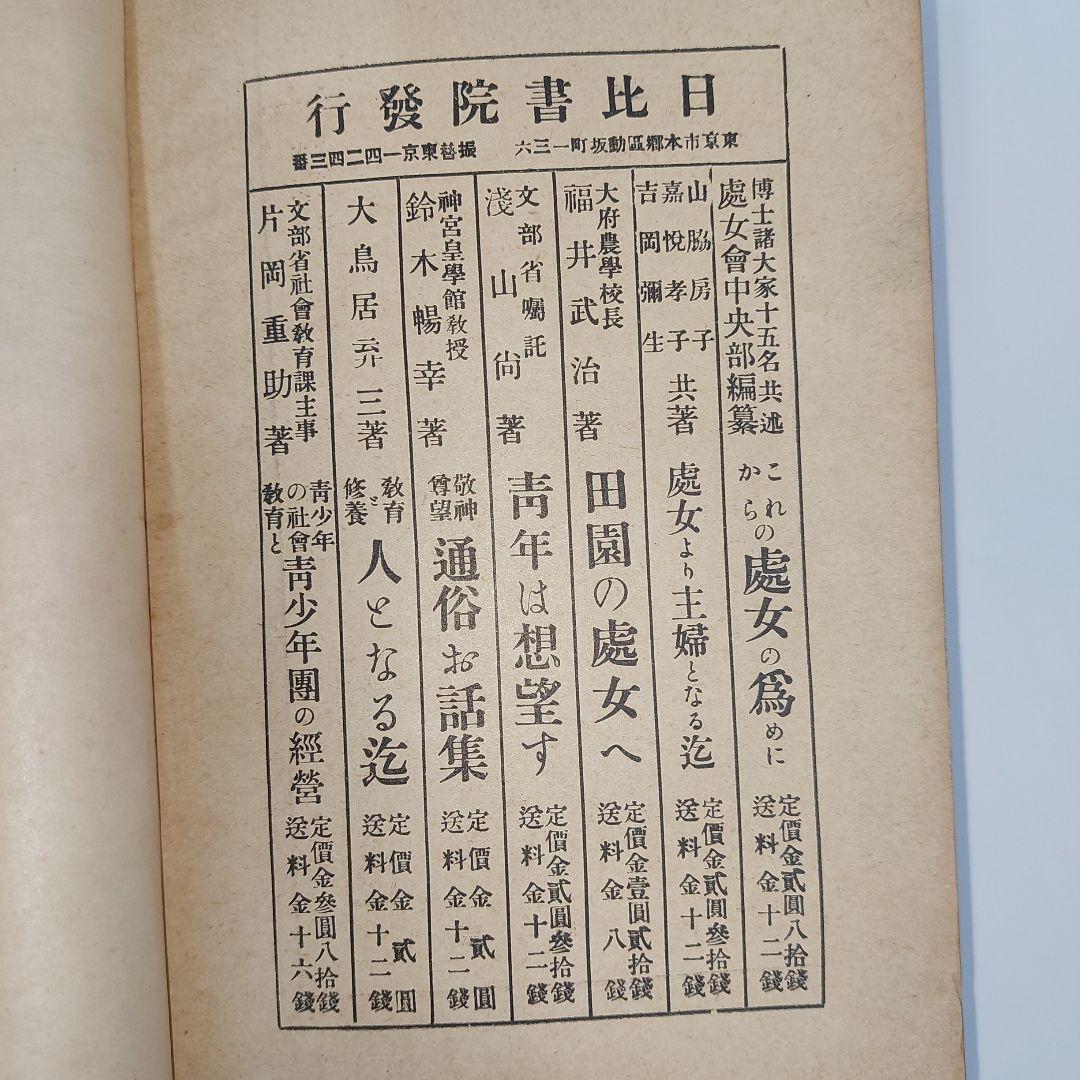 日比書院發行
東京市本郷區動坂町一三六　振替東京一四二四三番
博士諸大家十五名共述
處女會中央部編纂
これからの處女の爲めに
定價金貳圓八拾錢
送料金十二錢
山脇房子
嘉悅孝子
吉岡彌生
共著
處女より主婦となる迄
定價金貳圓參拾錢
送料金十二錢
大府農學校長
福井武治著
田園の處女へ
定價金壹圓貳拾錢
送料金八錢
文部省囑託
淺山尙著
靑年は想望す
定價金貳圓參拾錢
送料金十二錢
神宮皇學館敎授
鈴木暢幸著
敬神尊望 通俗お話集
定價金貳圓
送料金十二錢
大鳥居弃三著
敎育と修養 人となる迄
定價金貳圓
送料金十二錢
文部省社會敎育課主事
片岡重助著
靑少年の社會敎育と 靑少年團の經營
定價金參圓八拾錢
送料金十六錢